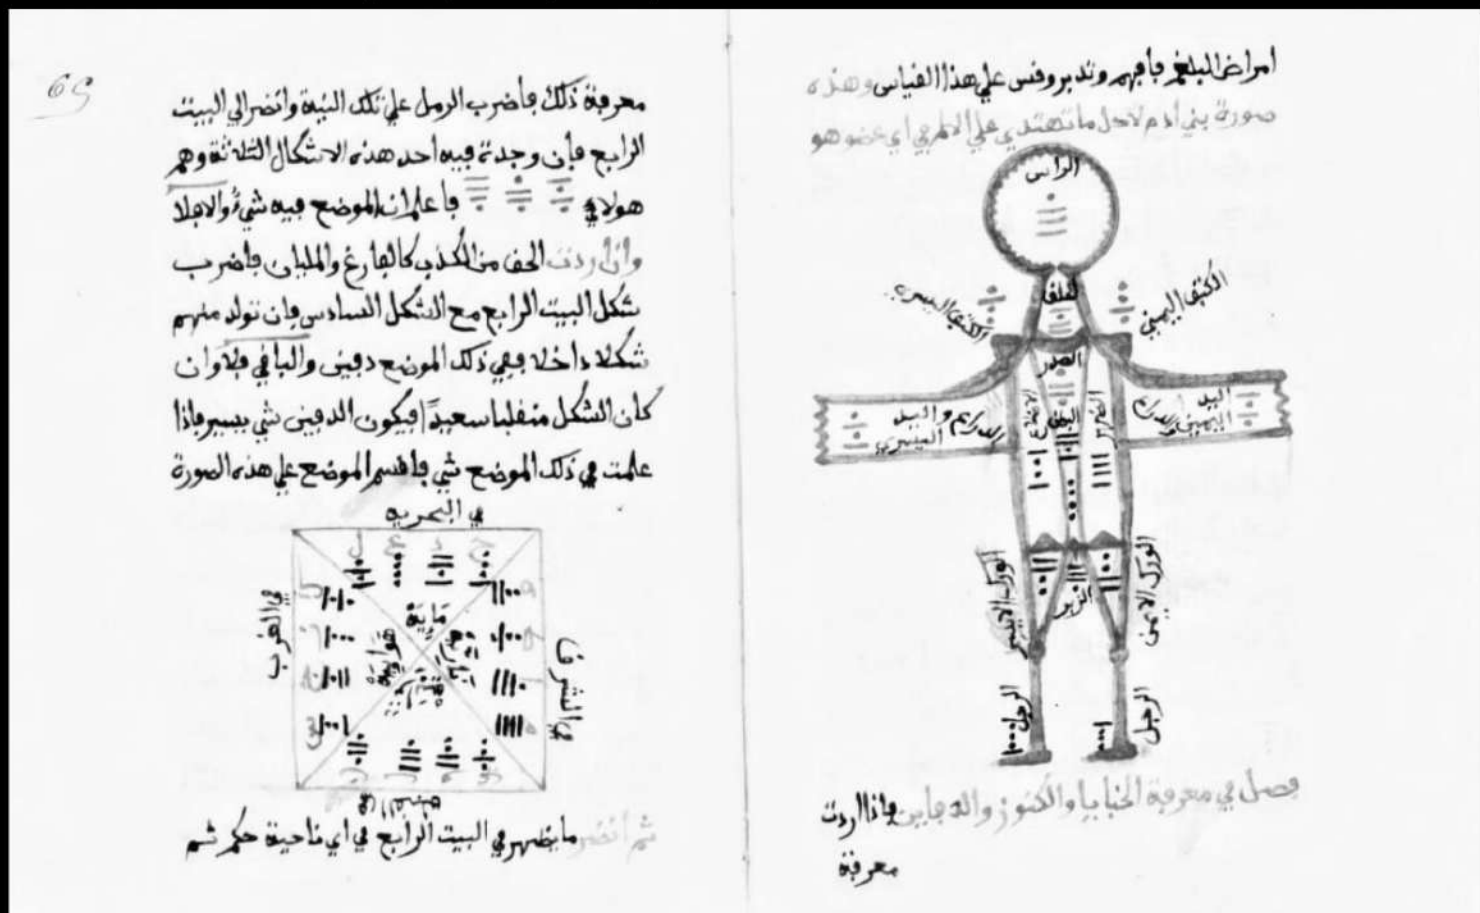 امراض البلغم فافهم وتدبر وقس علي هذا القياس وهذه
صورة بني أدم لاجل ما تهتدي علي الالم في اي عضو هو
الراس
الكتف اليمني
الكتف اليسري
الصدر
اليد اليمين
واليد اليسري
البطن
الورك الايمن
الورك الايسر
الزبر
الرجل
الرجل
فصل في معرفة الخبايا والكنوز والدفاين فاذا اردت
معرفة
معرفة ذلك فاضرب الرمل علي تلك النية وانضر الي البيت
الرابع فإن وجدة فيه احد هذه الاشكال الثلاثة وهم
هولاي فاعلم ان الموضع فيه شيء والا فلا
وان اردت الحق من الكذب كالفارغ والمليان فاضرب
شكل البيت الرابع مع الشكل السادس فان تولد منهم
شكلا داخلا ففي ذلك الموضع دفين والباقي فلا وان
كان الشكل منقلبا سعيدًا فيكون الدفين شي يسير فاذا
علمت في ذلك الموضع شي فاقسم الموضع علي هذه الصورة
في البحريه
في الغرب
في الشرق
مَايية
هوايية
ثم انضر ما يضهر في البيت الرابع في اي ناحية حكم ثم